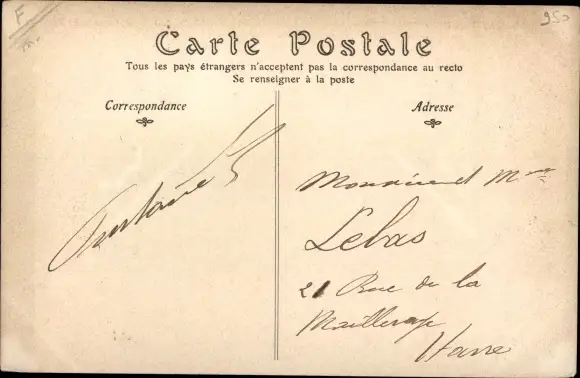 F
250
Carte Postale
Tous les pays étrangers n'acceptent pas la correspondance au recto
Se renseigner à la poste
Correspondance
Adresse
Monsieur et Mme
Lebas
21 Rue de la
Mailleraye
Havre